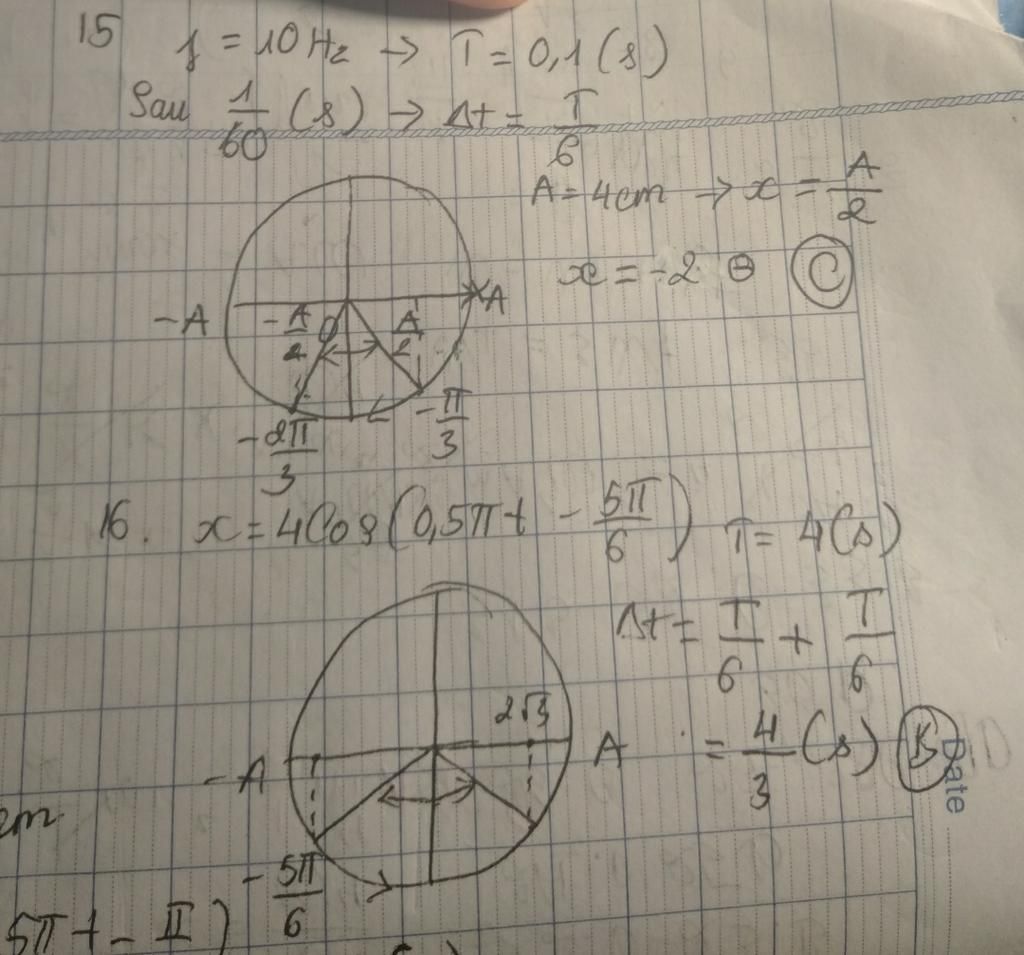 15 f = 10 Hz → T = 0,1 (s)
Sau 1/60 (s) → Δt = T/6
A = 4cm → x = A/2
x = -2 ⊖ Ⓒ
-A -A/2 O A/2 A
-2π/3 -π/3
16. x = 4Cos(0,5πt - 5π/6) T = 4(s)
Δt = T/6 + T/6
= 4/3 (s) Ⓑ
2√3
-A A
-5π/6
cm
5πt - π )
Date